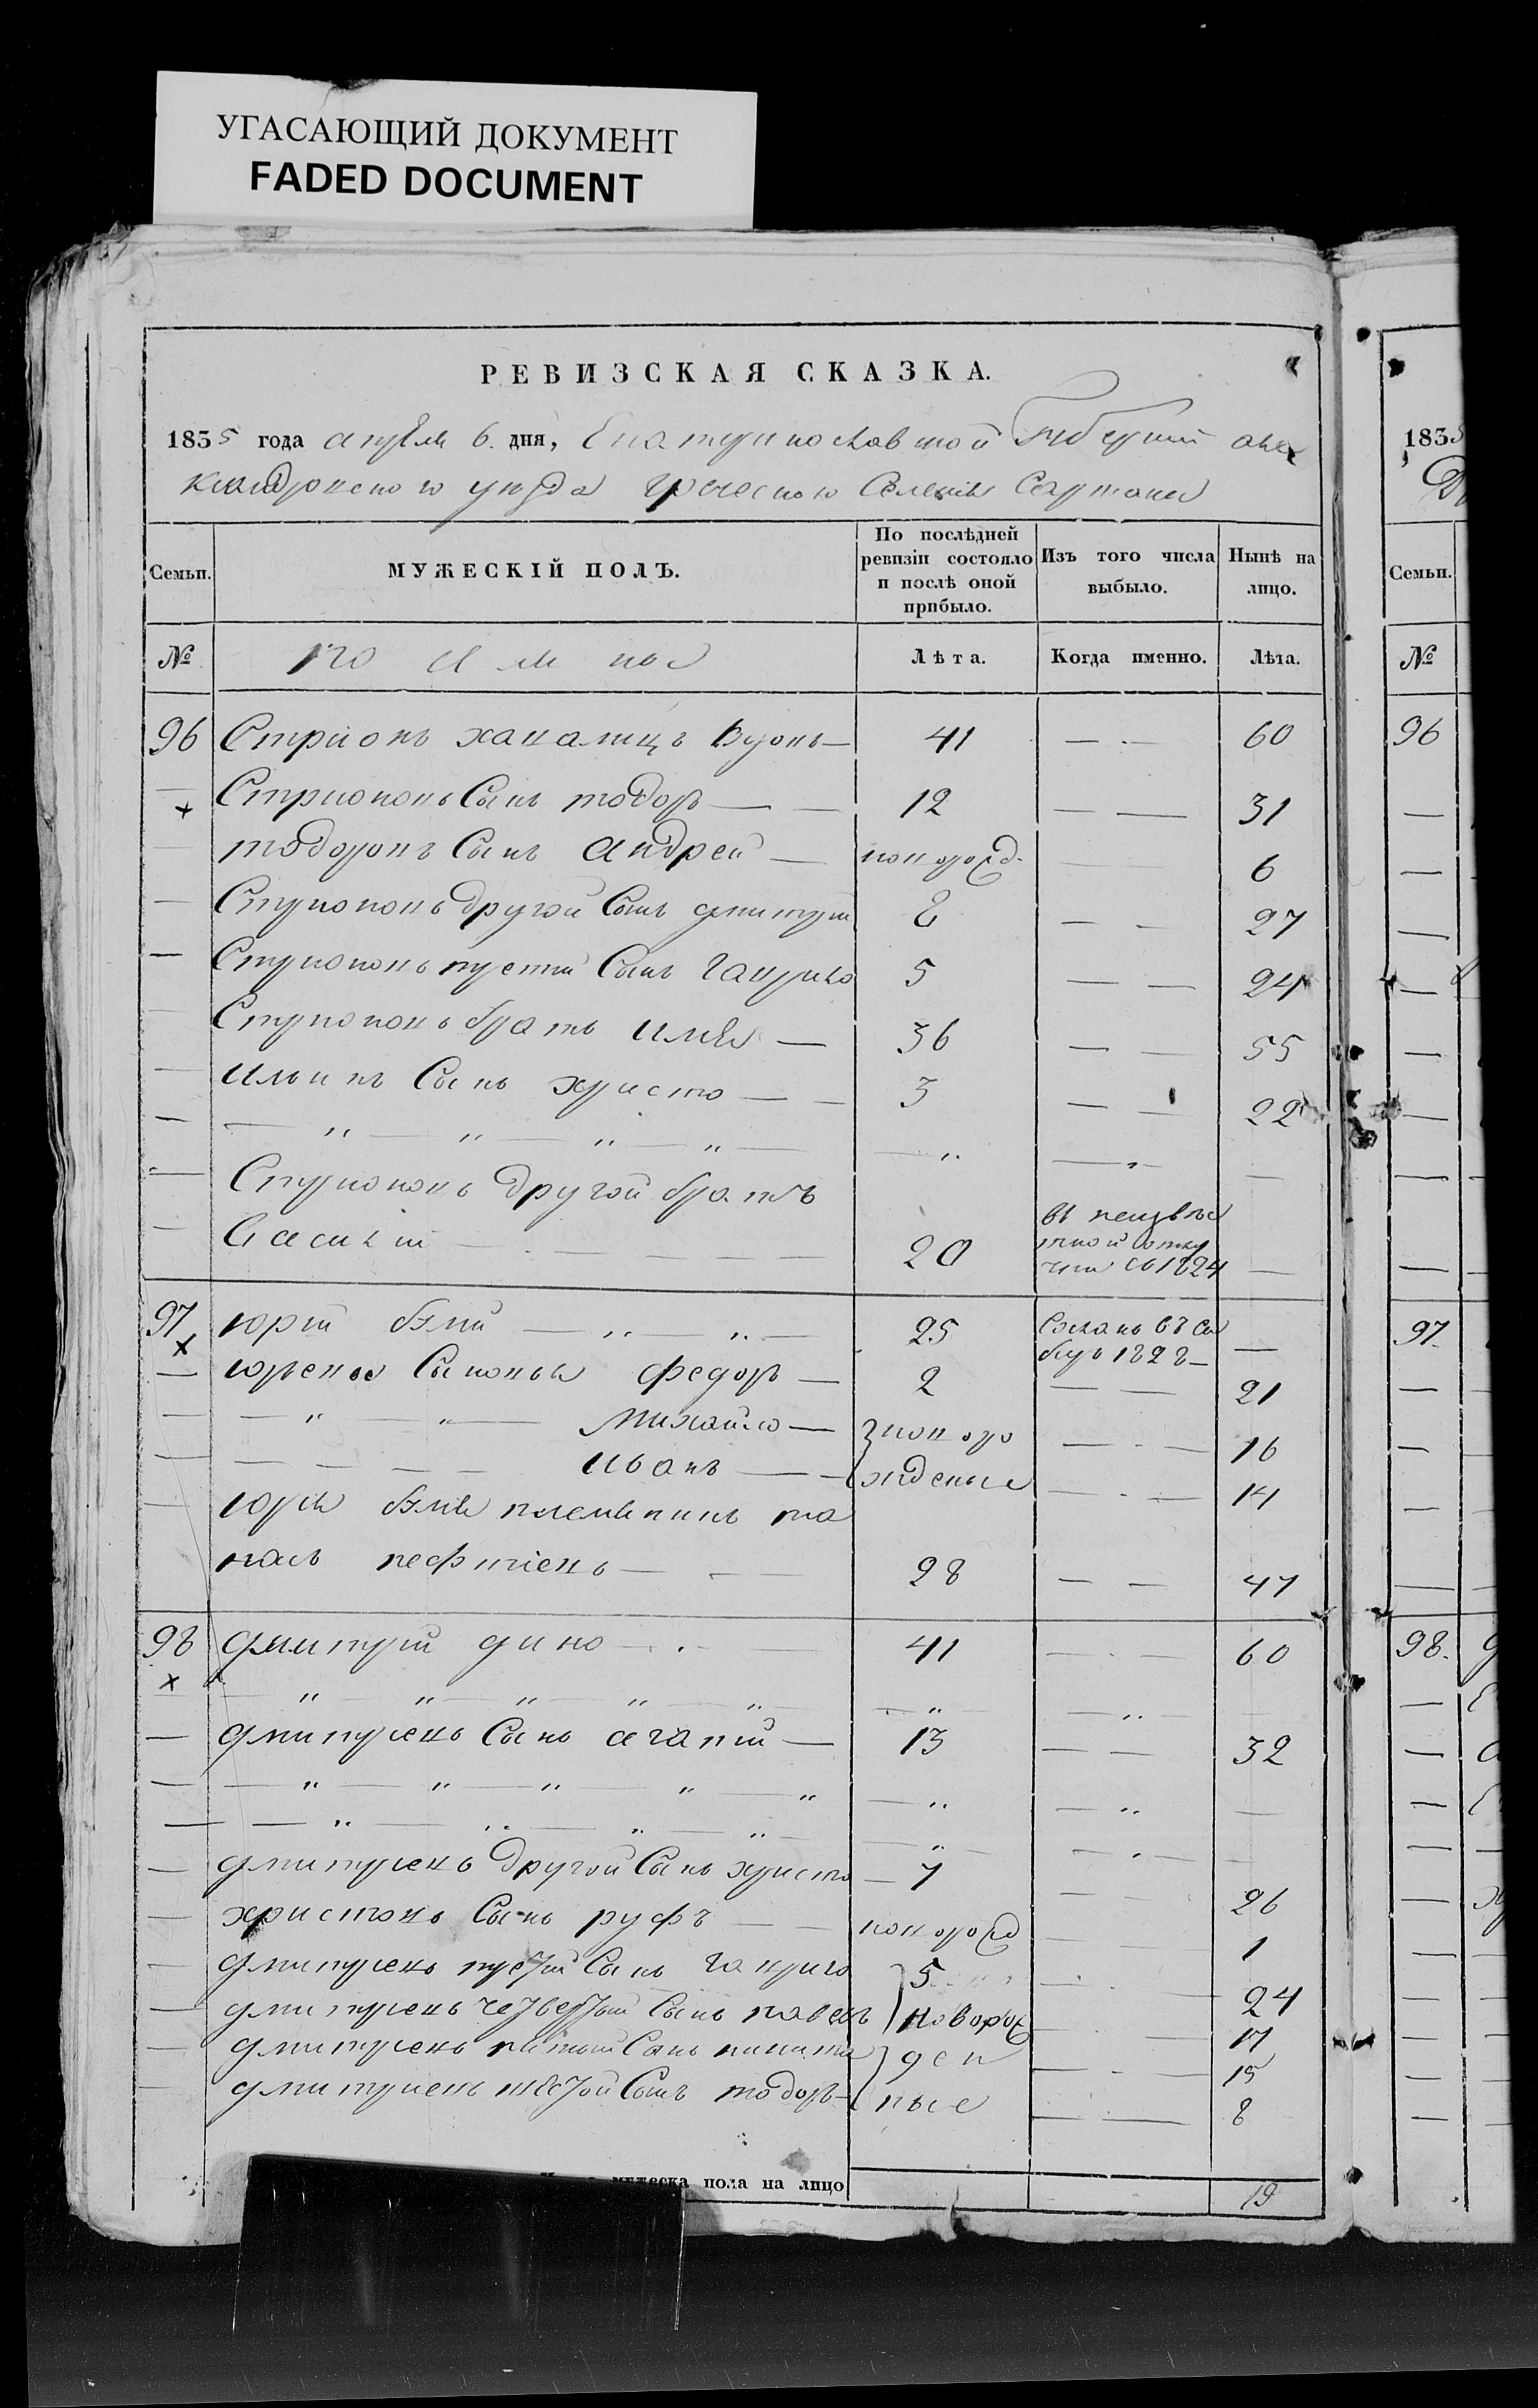 УГАСАЮЩИЙ ДОКУМЕНТ
FADED DOCUMENT
РЕВИЗСКАЯ СКАЗКА.
1835 года апреля 6. дня, Екатеринославской Губернии Але
ксандровского уезда греческого Селения Сартаны
Семьи. МУЖЕСКІЙ ПОЛЪ. По послѣдней ревизіи состояло и послѣ оной прибыло. Изъ того числа выбыло. Нынѣ на лицо.
№ Лѣта. Когда именно. Лѣта.
96 Стріонъ 41 — · — 60
Стрионовъ Сынъ тодоръ — — 12 — — 31
тодоровъ Сынъ Андрей — новорожд. 6
Стрионовъ другой Сынъ дмитрий 8 — — 27
Стрионовъ третій Сынъ Гаврило 5 — — 24
Стрионовъ братъ Илья — 36 — — 55
Ильинъ Сынъ христо — — 3 — — 22
— " — " — " — " — — " — " —
Стрионовъ другой братъ
Василій — 20 в неизвѣс
тной отлу
чки со 1824 —
97 юрий 25 Сосланъ въ Си
бирь 1828 —
юрьевы Сыновья федоръ — 2 — — 21
— " " — Михайло — новоро — · — 16
— — — — Иванъ — — жденые — · — 14
юрія племянникъ
28 — — 47
98 дмитрий дино — · — 41 — · — 60
— " — " — " — " — " — — " — " —
дмитриевъ Сынъ агапий — 13 — — 32
— " — " — " — " — " — " — " —
— " — " — " — " — " — " —
дмитриевъ другой Сынъ христо — 7 — — 26
христовъ Сынъ руфъ — — новорожд 1
дмитриевъ третій Сынъ Гаврило 5 — 24
дмитриевъ четвертый Сынъ павелъ новорож — 17
дмитриевъ пятый Сынъ никита ден — · — 15
дмитриевъ шестой Сынъ тодоръ — ные — 8
мужеска пола на лицо 19
1835
Семьи.
№
96
97.
98.